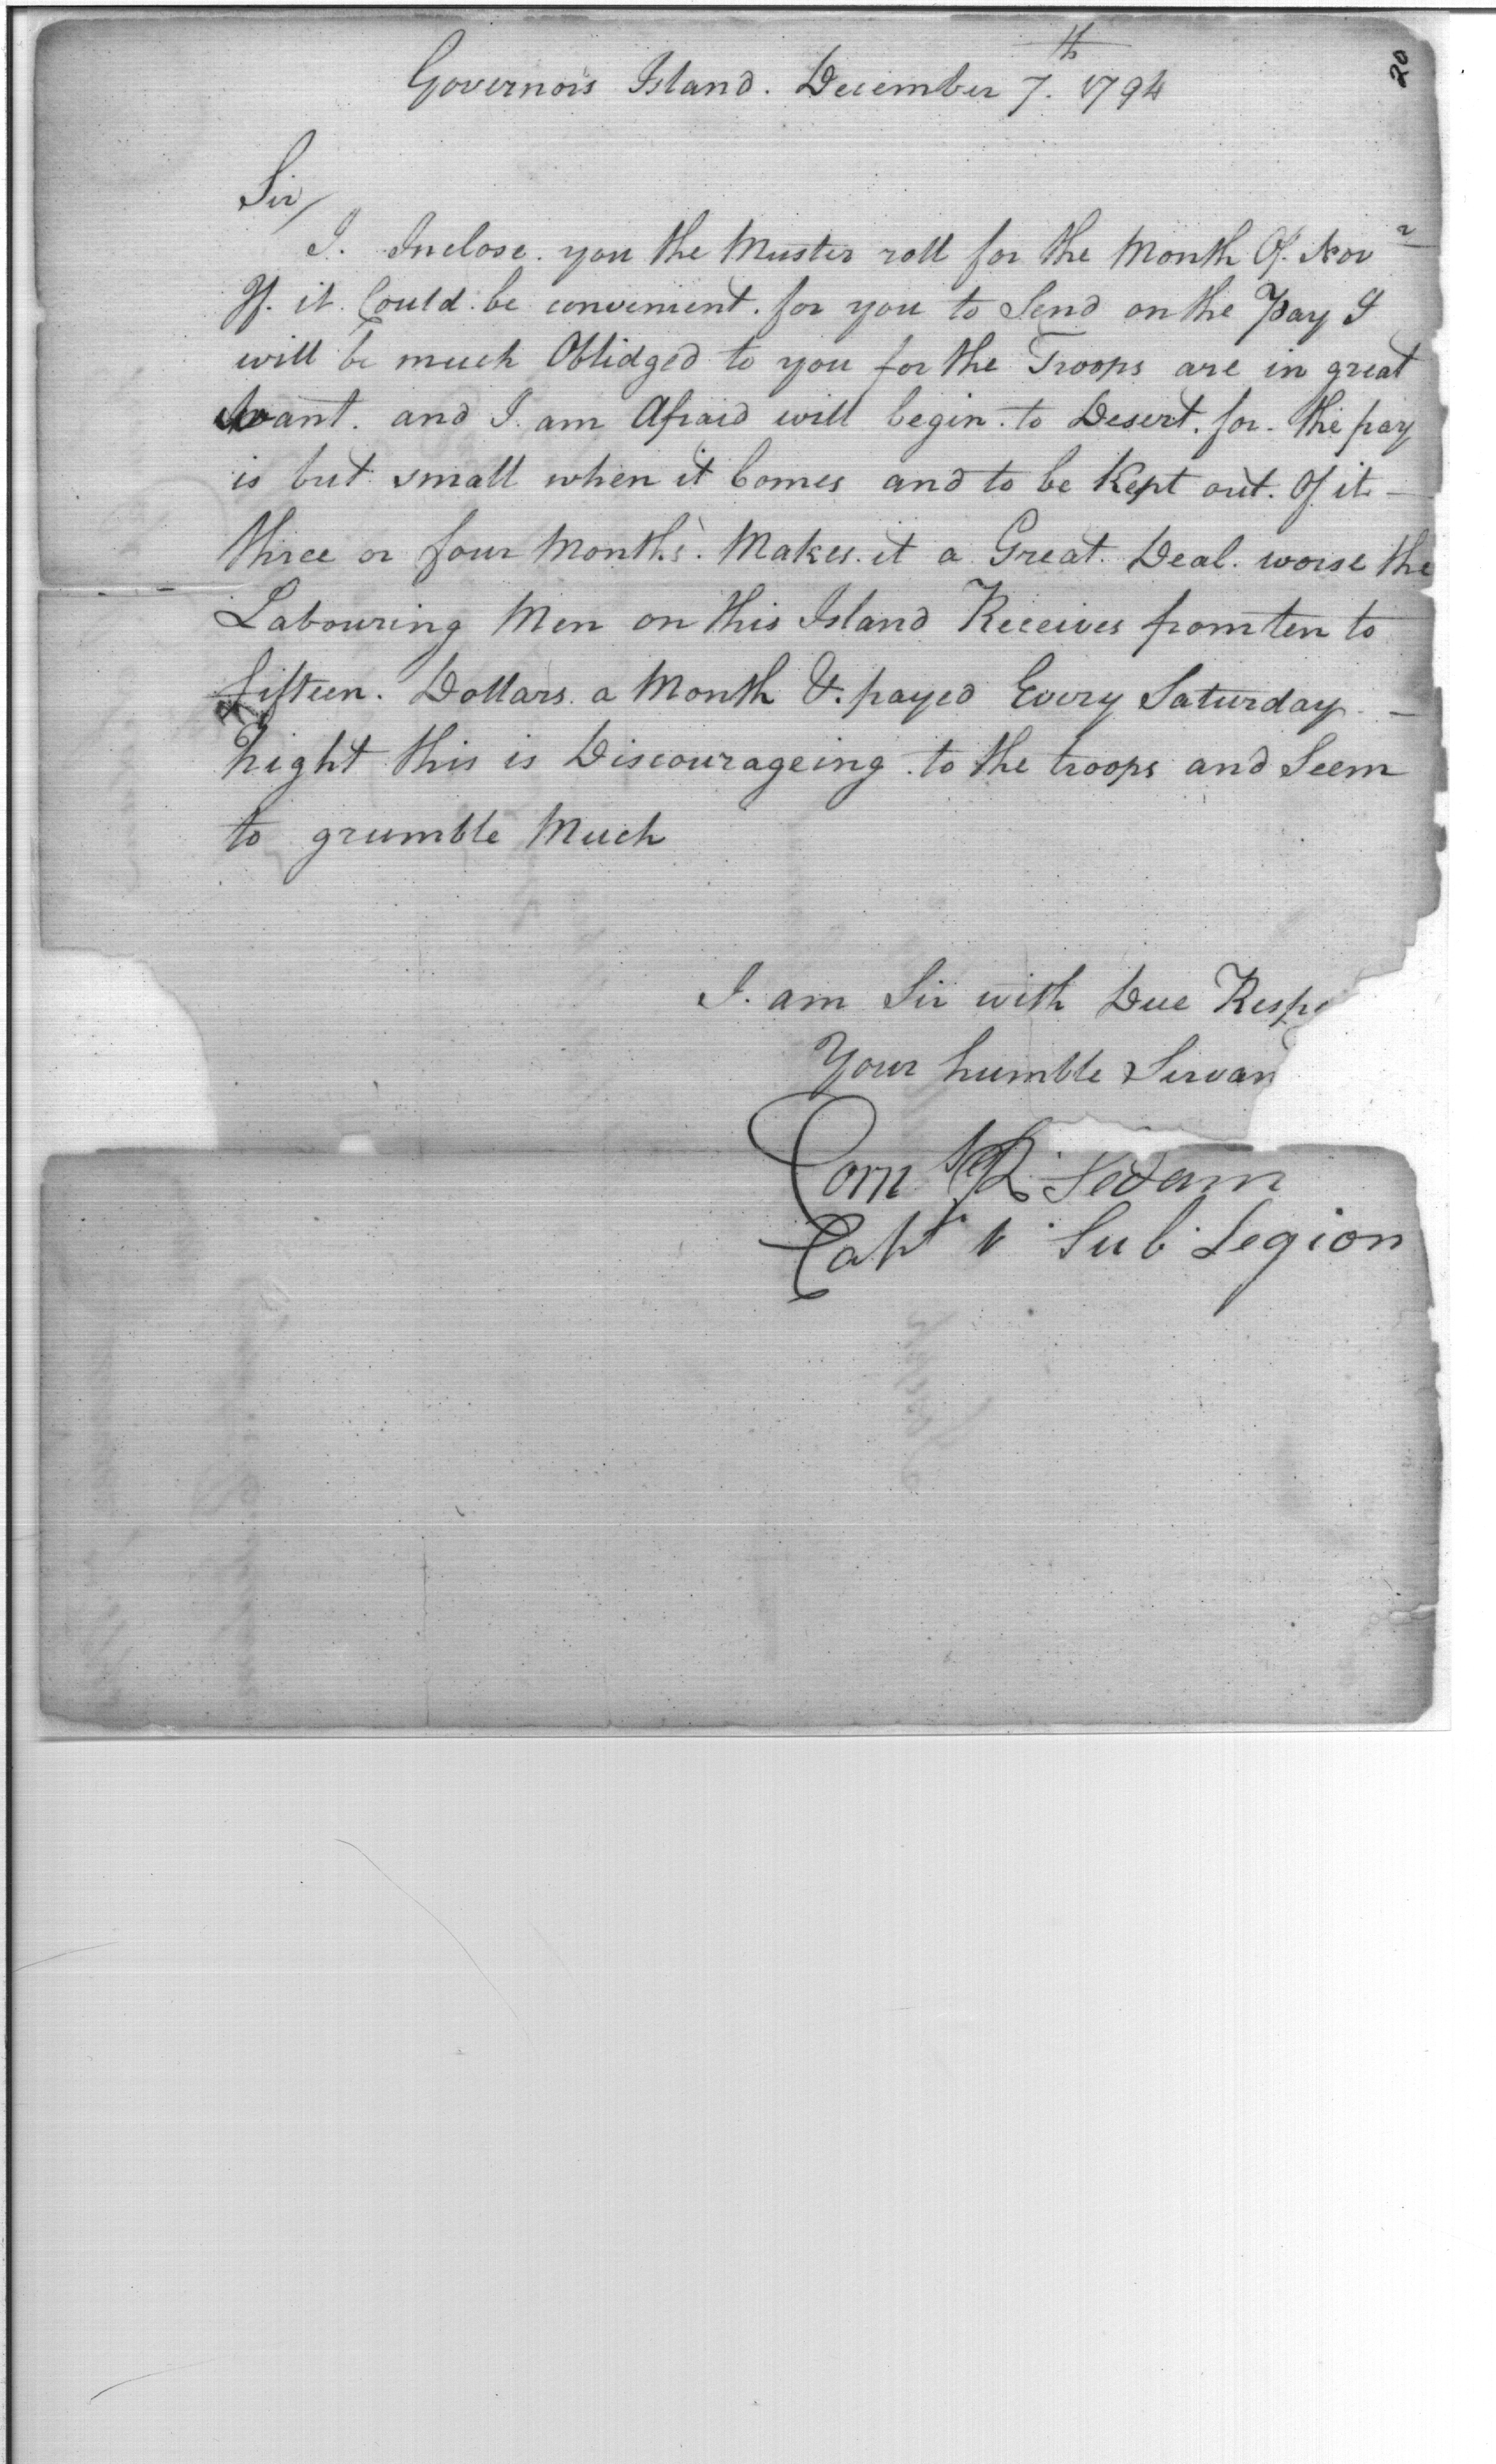 20
Governors Island. December 7th. 1794
Sir/
I. Inclose. you the Muster roll for the Month Of. Novr
If. it. Could. be convenient. for you to Send on the Pay I
will be much Oblidged to you for the Troops are in great
want. and I. am Afraid will begin. to Desert. for. the pay
is but small when it Comes and to be Kept out. Of it. —
three or four Months. Makes. it a Great. Deal. worse the
Labouring Men on this Island Receives from ten to
fifteen. Dollars. a Month &. payed Every Saturday. —
Night this is Discourageing. to the troops and Seem
to grumble Much
I. am Sir with Due Respe
Your humble Servan
Corns R Sedam
Capt 1 Sub Legion